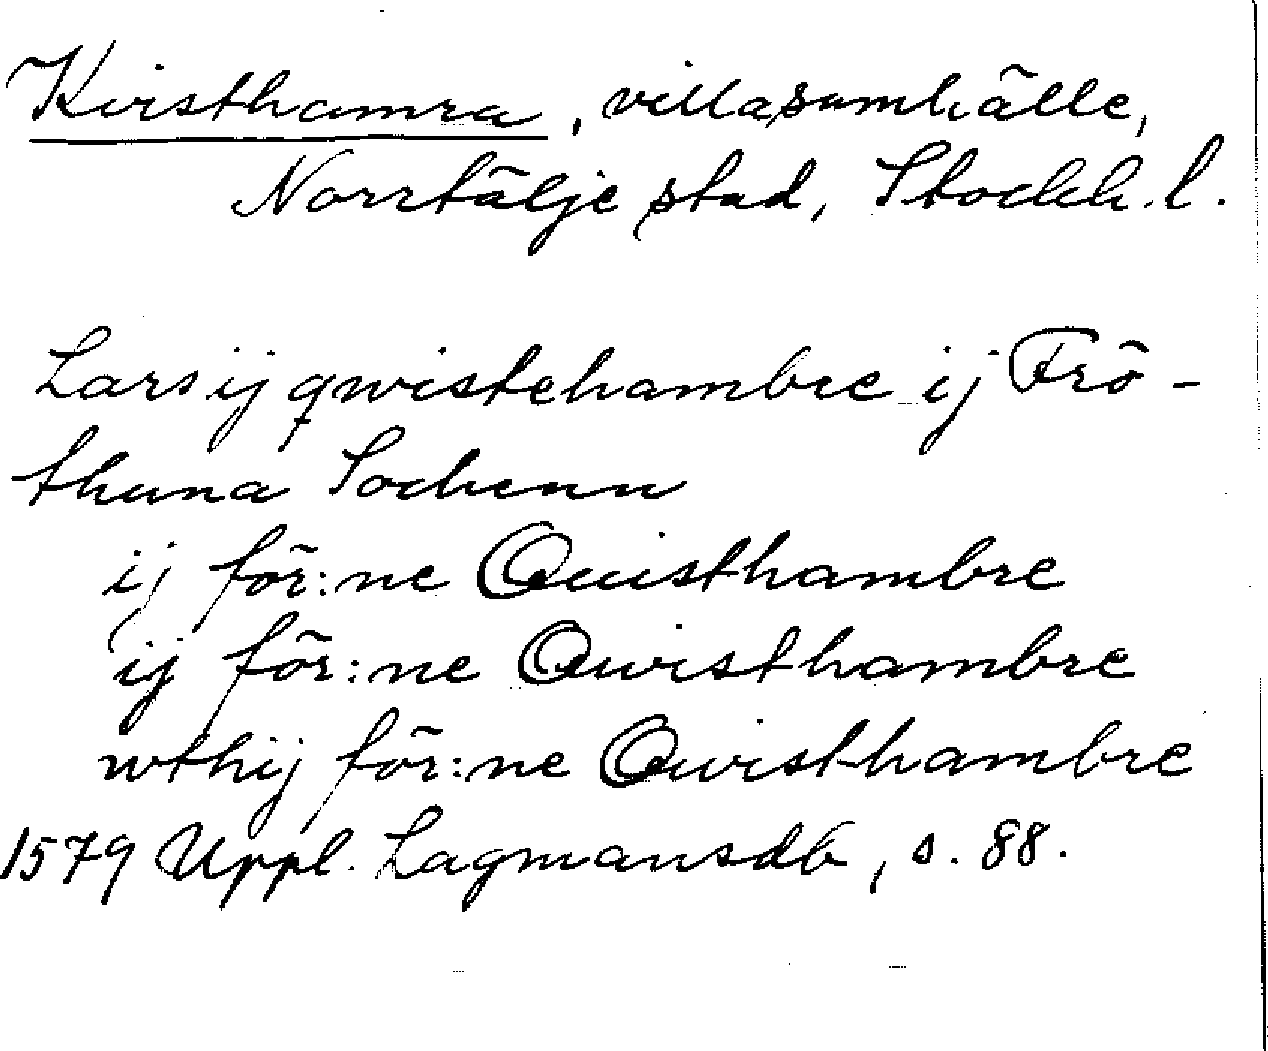 Kvisthamra, villasamhälle,
Norrtälje stad, Stockh. l.
Lars ij qwistehambre ij Frö-
thuna Sochenn
ij för:ne Quisthambre
ij för:ne Qwisthambre
wthij för:ne Qwisthambre
1579 Uppl. Lagmansdb, s. 88.